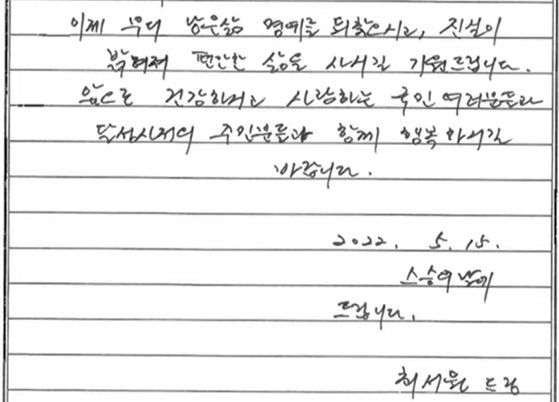 이제 부디 남은삶 명예를 되찾으시고, 진실이
밝혀져 편안한 삶을 사시길 기원드립니다.
앞으로 건강하시고 사랑하는 국민 여러분들과
달성사저의 주민분들과 함께 행복하시길
바랍니다.
2022. 5. 15.
스승의날에
드립니다.
최서원 드림